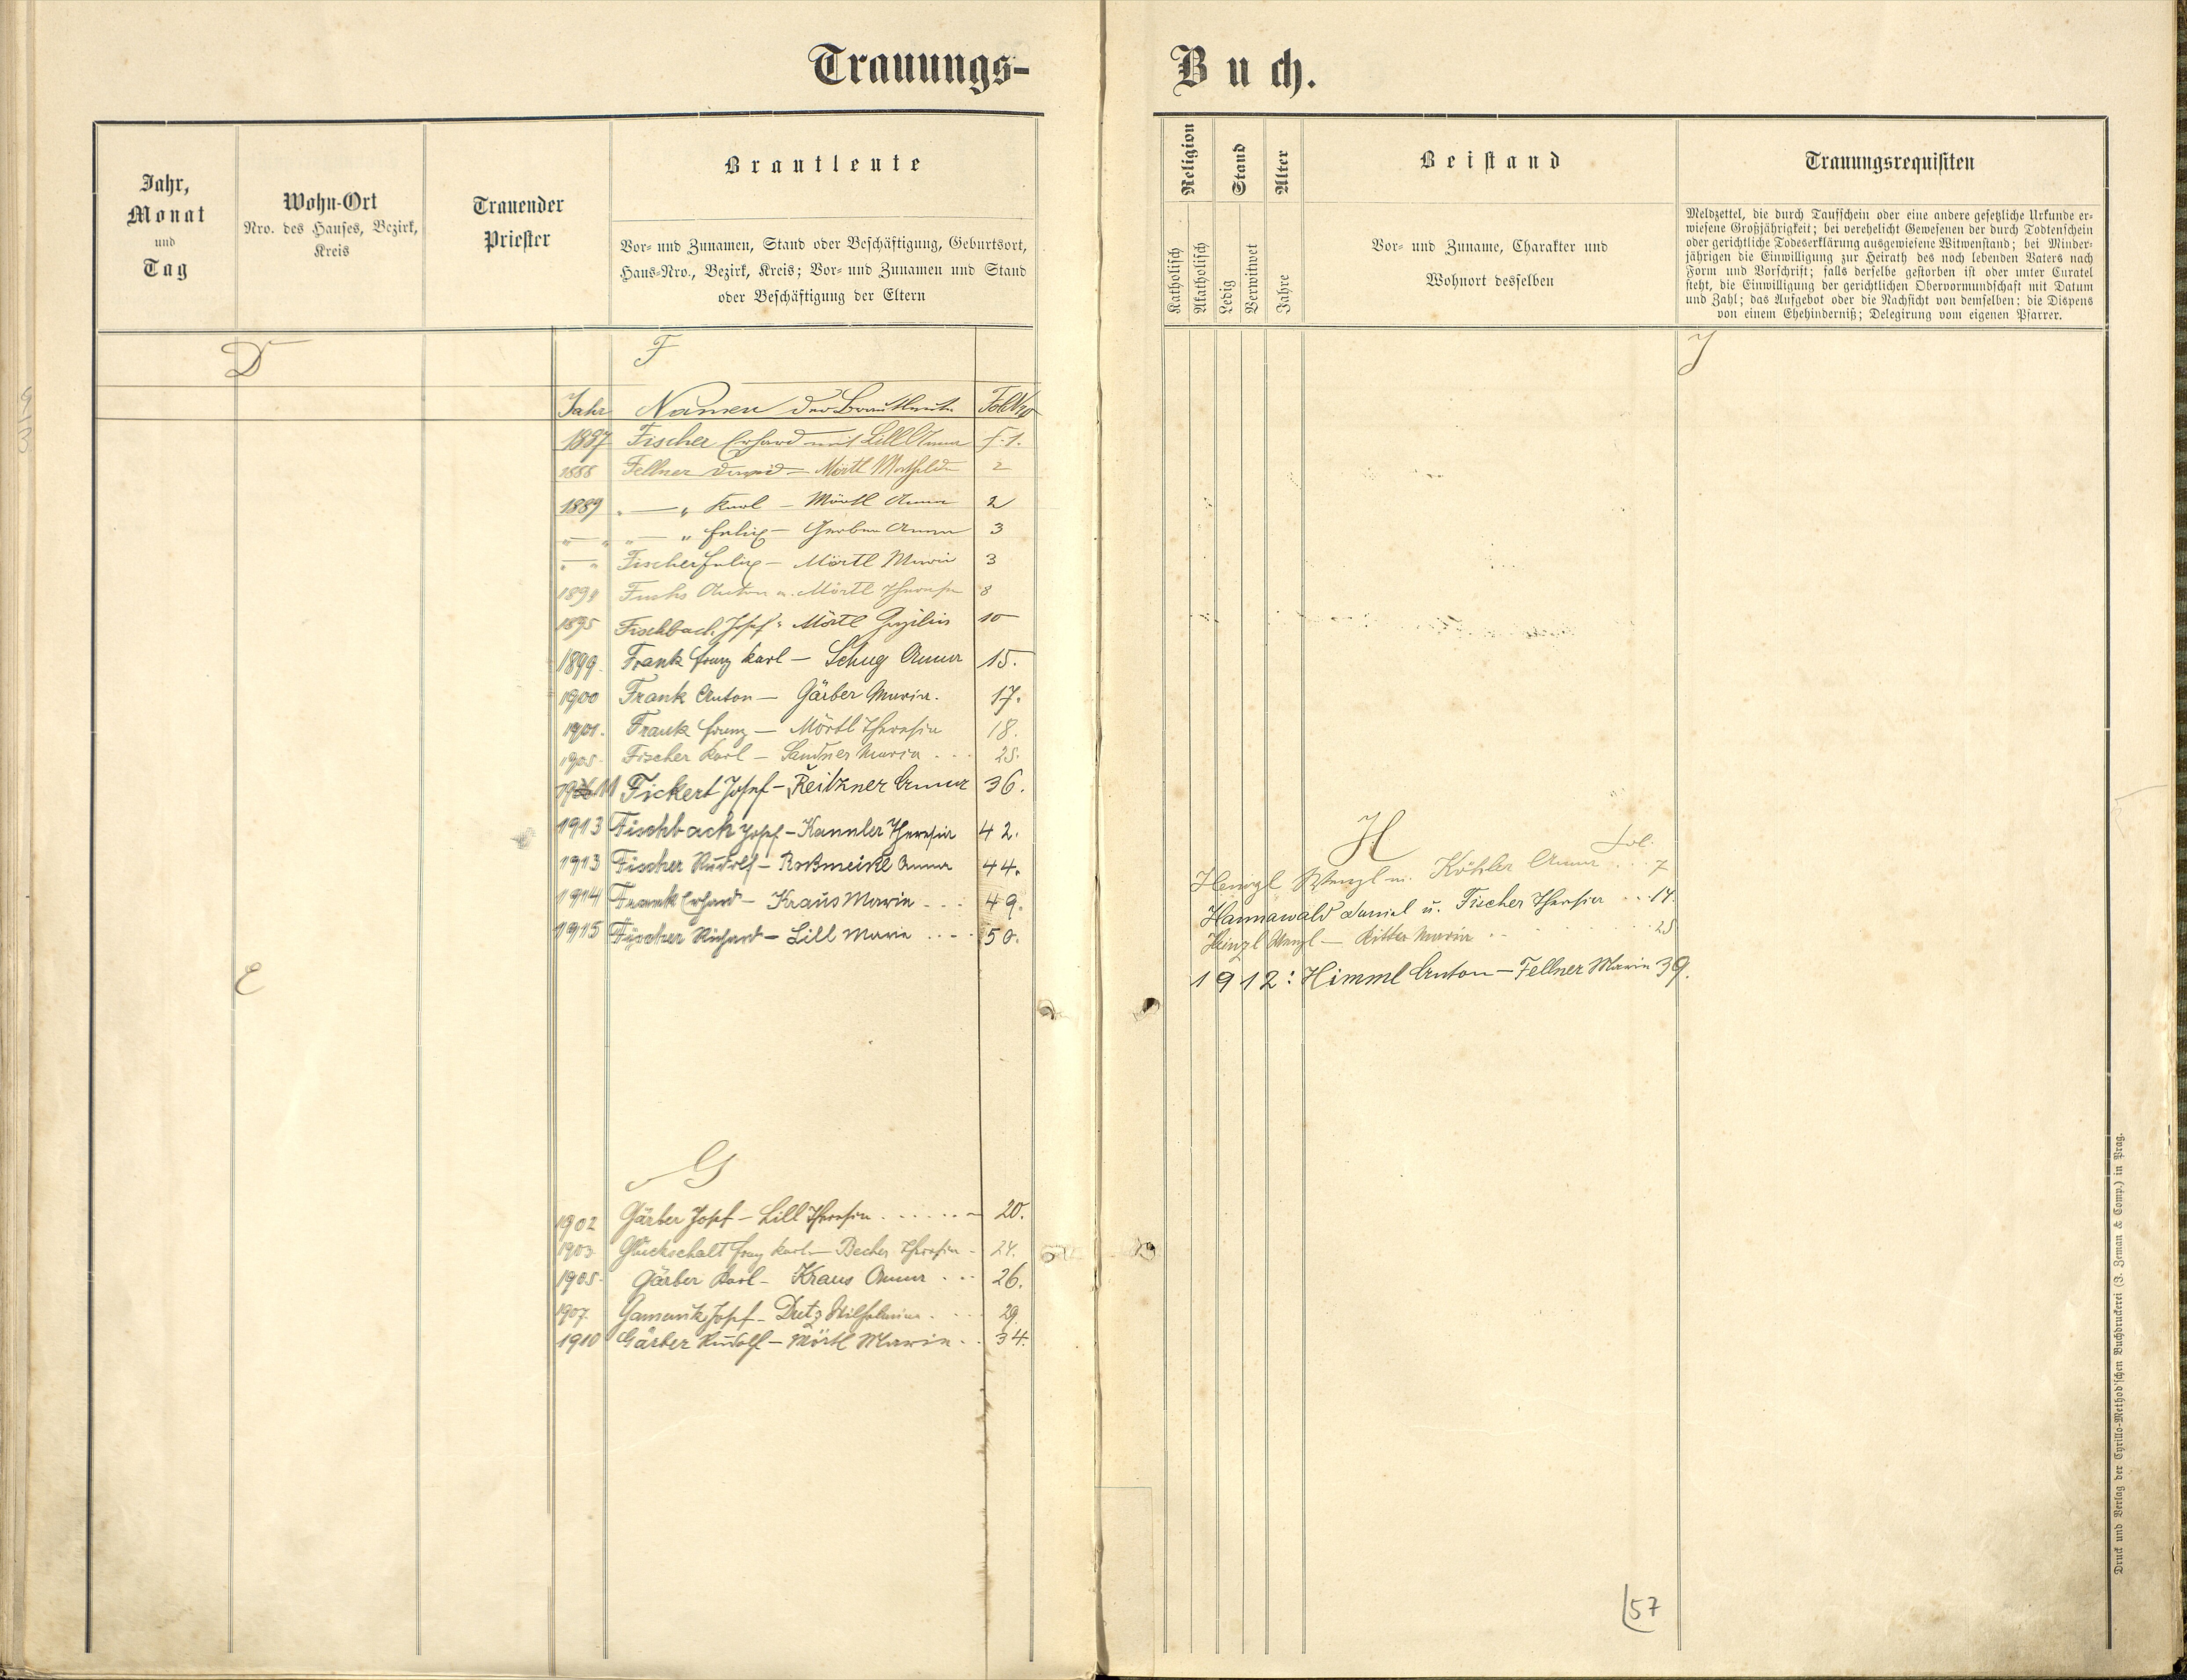 Trauungs-
Jahr,
Monat
und
Tag
Wohn-Ort
Nro. des Hauses, Bezirk,
Kreis
Trauender
Priester
Brautleute
Vor- und Zunamen, Stand oder Beschäftigung, Geburtsort,
Haus-Nro., Bezirk, Kreis; Vor- und Zunamen und Stand
oder Beschäftigung der Eltern
D
F
Jahr Namen der Brautleute Fol Nro
1887 Fischer Erhard mit Lill Anna f. 1.
1888 Fellner David – Mörtl Mathilde 2
1889 " — " Karl – Mörtl Anna 2
" — " " — " Felix – Gerber Anna 3
" — " Fischer Felix – Mörtl Maria 3
Fuchs Anton u. Mörtl Theresia 8
1895 Fischbach Josef : Mörtl 10
1899. Frank Franz Karl – Schug Anna 15.
1900 Frank Anton – Gärber Maria. 17.
1901. Frank Franz – Mörtl Theresia 18.
1905. Fischer Karl – Sandner Maria . . . 25.
11 Fickert Josef – Reitzner Anna 36.
1913 Fischbach Josef – Kannler Theresia 42.
1913 Fischer Rudolf – Roßmeißl Anna 44.
1914 Frank Erhard – Kraus Maria . . . 49.
1915 Fischer Richard – Lill Maria . . . 50.
E
G
1902 Gärber Josef – Lill Theresia . . . . . . 20.
1903. Glückschalt Franz Karl – Becher Theresia – 24.
1905. Gärber Karl – Kraus Anna . . . 26.
1907. Josef – Dutz Wilhelmine . . . 29.
1910 Gärber Rudolf – Mörtl Maria . . 34.
Buch.
Religion
Katholisch
Akatholisch
Stand
Ledig
Verwitwet
Alter
Jahre
Beistand
Vor- und Zuname, Charakter und
Wohnort desselben
Trauungsrequisiten
Meldzettel, die durch Taufschein oder eine andere gesetzliche Urkunde er-
wiesene Großjährigkeit; bei verehelicht Gewesenen der durch Todtenschein
oder gerichtliche Todeserklärung ausgewiesene Witwenstand; bei Minder-
jährigen die Einwilligung zur Heirath des noch lebenden Vaters nach
Form und Vorschrift; falls derselbe gestorben ist oder unter Curatel
steht, die Einwilligung der gerichtlichen Obervormundschaft mit Datum
und Zahl; das Aufgebot oder die Nachsicht von demselben; die Dispens
von einem Ehehinderniß; Delegirung vom eigenen Pfarrer.
J
H fol.
Heinzl Wenzl u. Köhler Anna . . . 7
Hannawald Daniel u. Fischer Theresia . . . 14.
Heinzl Wenzl – Ritter Maria . . . 25
1912: Himml Anton – Fellner Maria 39.
57
Druck und Verlag der Cyrillo-Method'schen Buchdruckerei (J. Zeman & Comp.) in Prag.